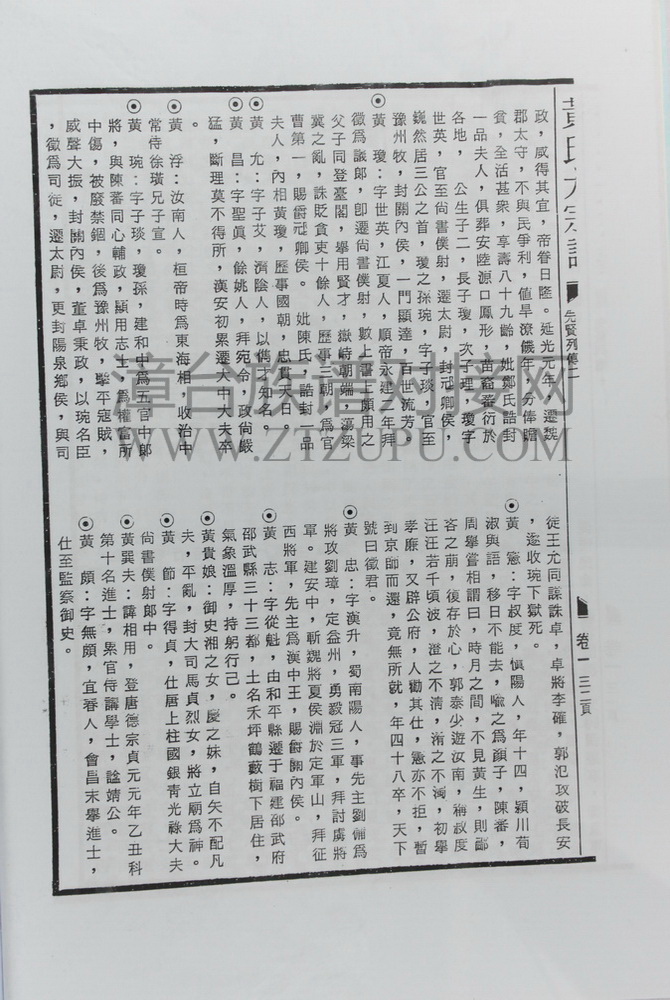 黃氏大宗譜
先賢列傳二
卷一
三二頁
政，咸得其宜，帝眷日隆。延光元年，遷魏
郡太守，不與民爭利，值旱潦饑年，分俸贍
貧，全活甚衆，享壽八十九齡，妣鄭氏誥封
一品夫人，俱葬安陸源口鳳形，苗裔蕃衍於
各地，　公生子二，長子瓊，次子理，瓊字
世英，官至尚書僕射，遷太尉，封冠卿侯，
巍然居三公之首，瓊之孫琬，字子琰，官至
豫州牧，封關內侯，一門顯達，百世流芳。
黃　瓊：字世英，江夏人，順帝永建二年拜
徵爲議郎，卽遷尚書僕射，數上書上頗用之
父子同登臺閣，舉用賢才，嶽峙朝端，蕩梁
冀之亂，誅貶貪吏十餘人，歷事三朝，爲官
曹第一，賜爵冠卿侯。　妣陳氏，誥封一品
夫人，內相黃瓊，歷事國朝，忠貫天日。
黃　尤：字子艾，濟陰人，以儁才知名。
黃　昌：字聖眞，餘姚人，拜宛令，政尚嚴
猛，斷理莫不得所，漢安初累遷大中大夫卒
。
黃　浮：汝南人，桓帝時爲東海相　收治中
常侍徐璜兄子宣。
黃　琬：字子琰，瓊孫，建和中爲五官中郎
將，與陳蕃同心輔政，顯用志士，爲權富所
中傷，被廢禁錮，後爲豫州牧，擊平寇賊，
威聲大振，封關內侯，董卓秉政，以琬名臣
，徵爲司徒，遷太尉，更封陽泉鄉侯，與司
徒王允同謀誅卓，卓將李傕，郭汜攻破長安
，遂收琬下獄死。
黃　憲：字叔度，愼陽人，年十四，潁川荀
淑與語，移日不能去，喩之爲顏子，陳蕃，
周擧嘗相謂曰，時月之間，不見黃生，則鄙
吝之萌，復存於心，郭泰少遊汝南，稱叔度
汪汪若千頃波，澄之不淸，淆之不濁，初擧
孝廉，又辟公府，人勸其仕，憲亦不拒，暫
到京師而還，竟無所就，年四十八卒，天下
號曰徵君。
黃　忠：字漢升，蜀南陽人，事先主劉備爲
將攻劉璋，定益州，勇毅冠三軍，拜討虜將
軍。建安中，斬魏將夏侯淵於定軍山，拜征
西將軍，先主爲漢中王，賜爵關內侯。
黃　志：字從魁，由和平縣遷于福建邵武府
邵武縣三十三都，土名禾坪鶴藪樹下居住，
氣象溫厚，持躬行己。
黃貴娘：御史湘之女，慶之妹，自矢不配凡
夫，平亂，封大司馬貞烈女，將立廟爲神。
黃　節：字得貞，仕居上柱國銀靑光祿大夫
尙書僕射郎中。
黃巽夫：諱相用，登唐德宗貞元元年乙丑科
第十名進士，累官侍講學士，謚靖公。
黃　頗：字無頗，宜春人，會昌末擧進士，
仕至監察御史。
漳台族谱对接网
WWW.ZTZUPU.COM